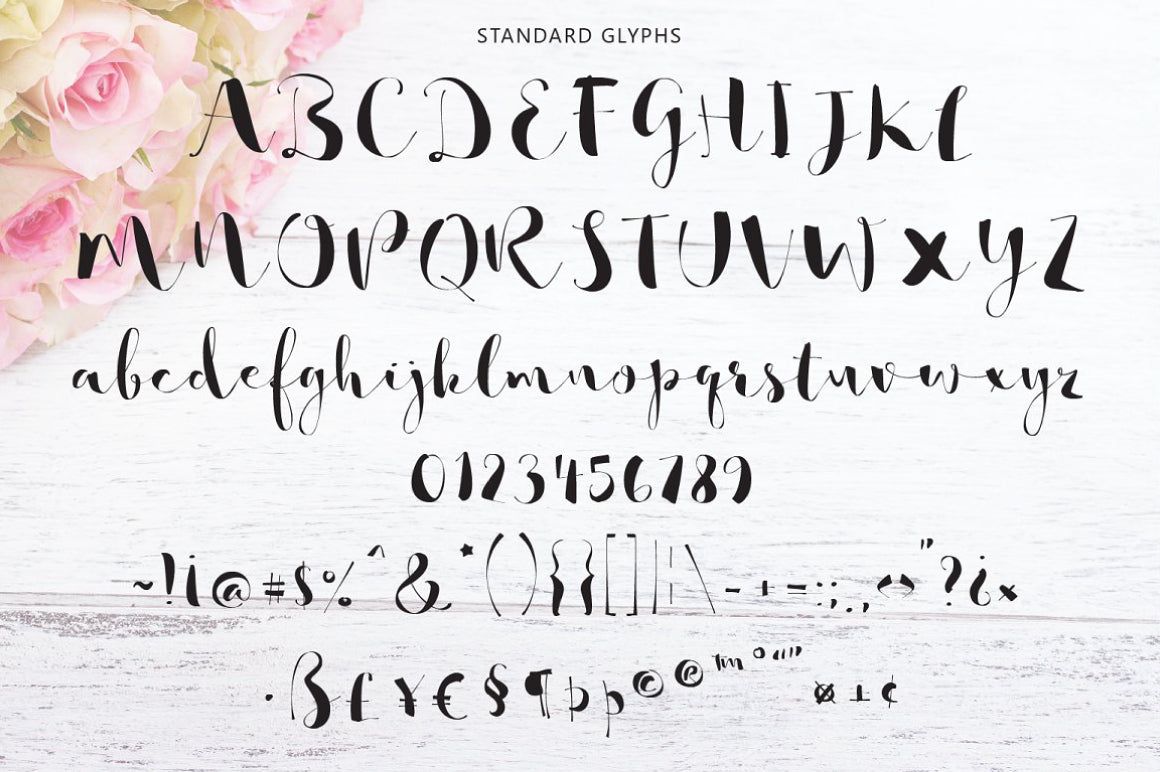 STANDARD GLYPHS
ABCDEFGHIJKL
MNOPQRSTUVWXYZ
abcdefghijklmnopqrstuvwxyz
0123456789
~!¡@#$%^&*(){}[]|¦\-+=:;.,‹›"?¿×
·ß£¥€§¶Þþ©®™°“”¤±¢